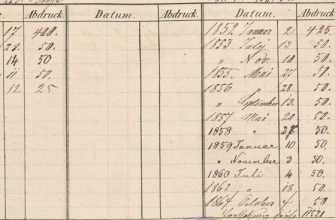 Abdruck. Datum. Abdruck. Datum. Abdruck
17 400. 1852 Januar 2 425
21. 50. 1853 Julj 13. 50.
14 50 " Nov. 10 50.
11 50. 1855. Mai 27 50
12 25 1856 28. 50.
" September 13. 50.
1857 Mai 20 50.
1858 " 27 50.
1859 Januar 10 50.
" November 3 30.
1860 Juli 4 50.
1862 " 18. 50.
1864 October 4. 50